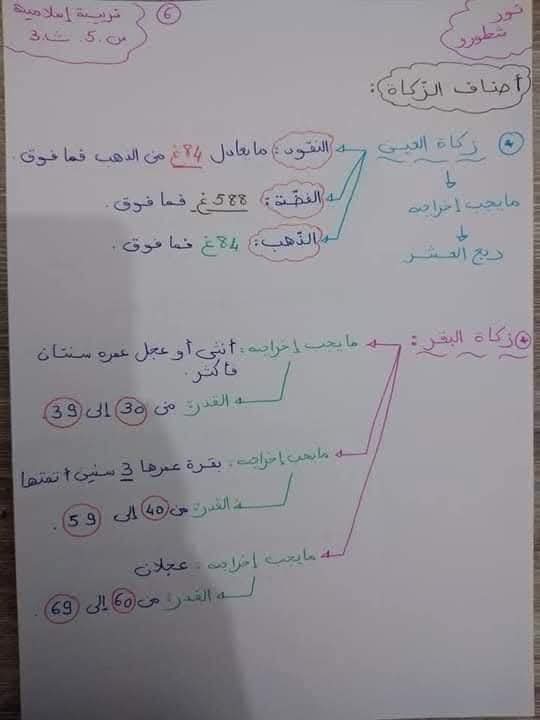 نور
شطورو
6
تربية إسلامية
س. 5. ش. 3
أصناف الزّكاة:
زكاة العين
ما يجب إخراجه
ربع العشر
النقود: ما يعادل 84غ من الذهب فما فوق.
الفضّة: 588غ فما فوق.
الذّهب: 84غ فما فوق.
زكاة البقر:
ما يجب إخراجه: أنثى أو عجل عمره سنتان
فأكثر.
القدر: من 30 إلى 39.
ما يجب إخراجه: بقرة عمرها 3 سنين أتمتها
القدر: من 40 إلى 59.
ما يجب إخراجه: عجلان
القدر: من 60 إلى 69.